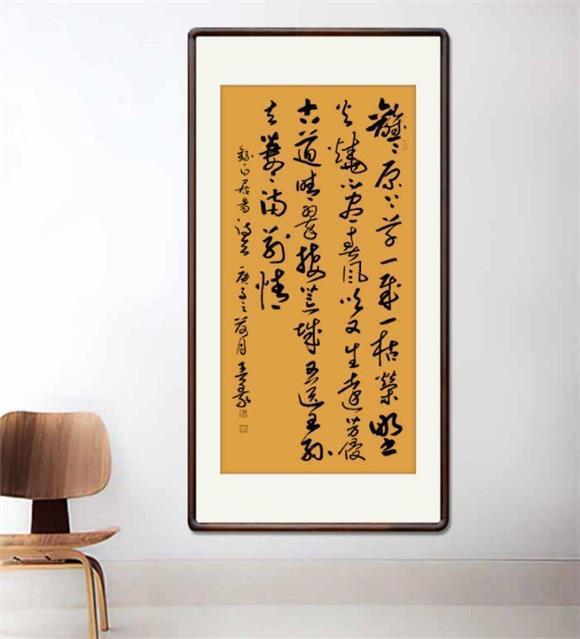 離離原上草一歲一枯榮野
火燒不盡春風吹又生遠芳侵
古道晴翠接荒城又送王孫
去萋萋滿別情
錄白居易詩 庚子之荷月